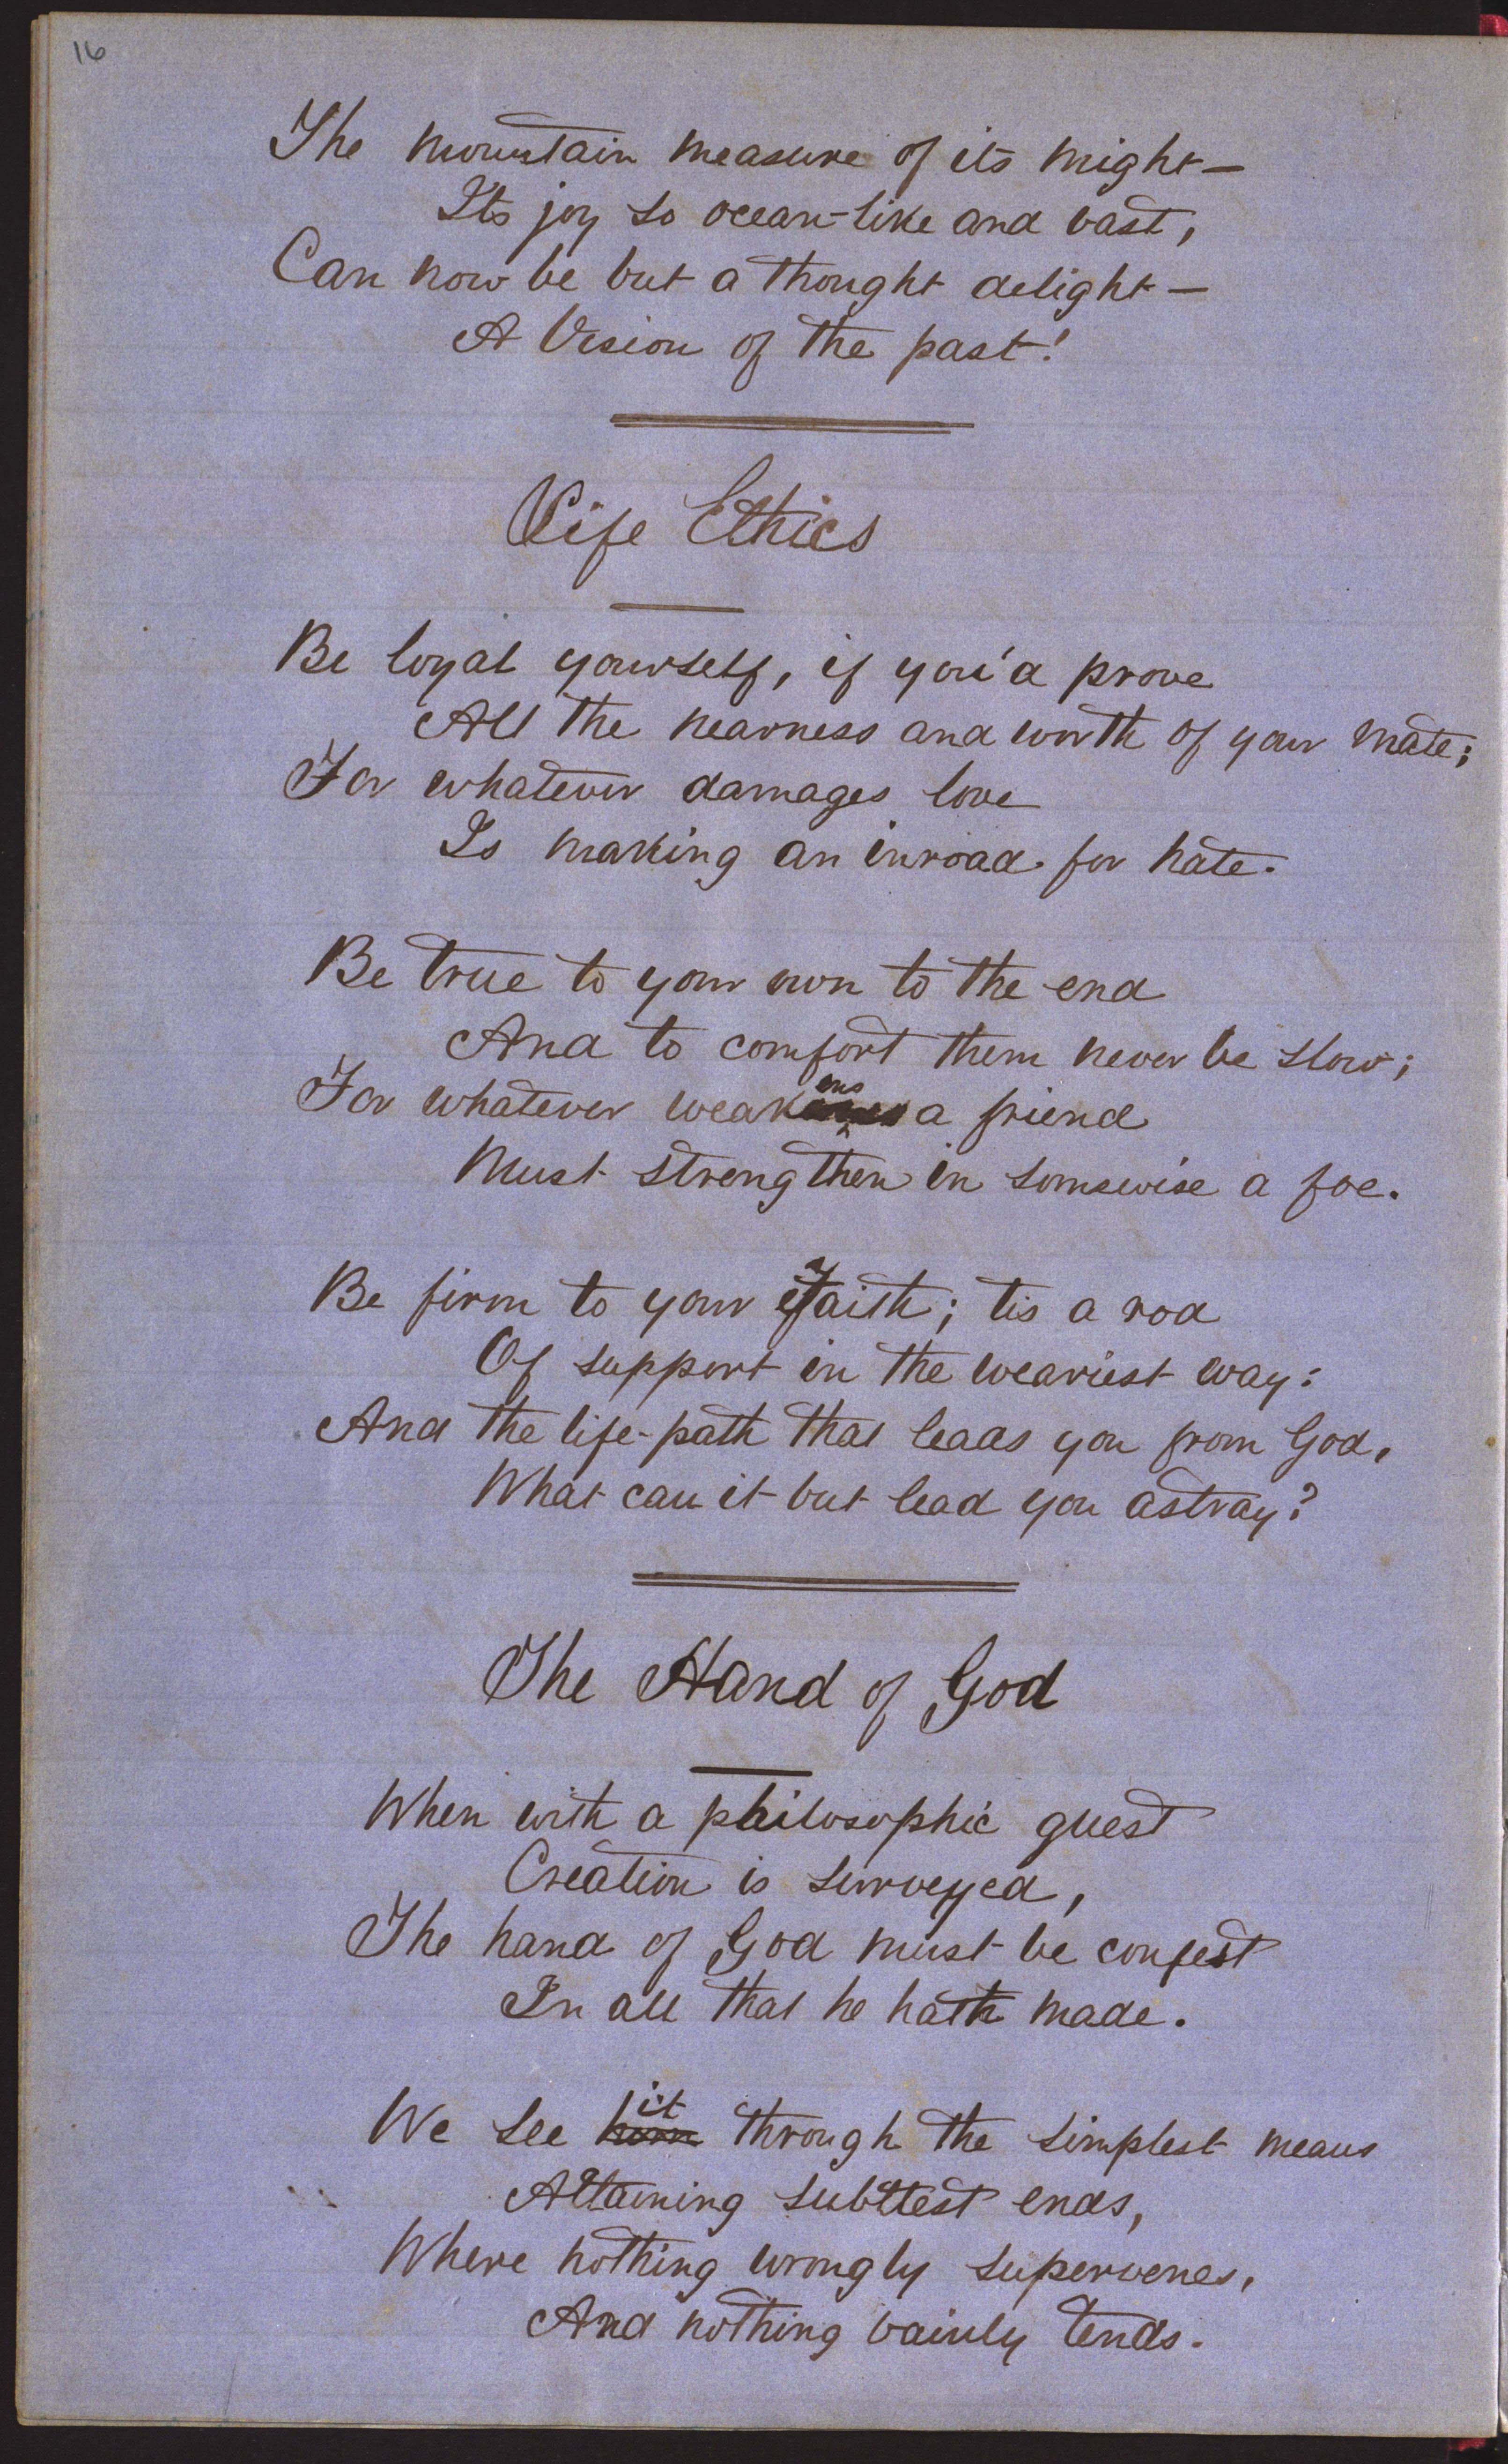 16
The mountain measure of its might—
Its joy so ocean-like and vast,
Can now be but a thought delight—
A Vision of the past!
Life Ethics
Be loyal yourself, if you'd prove
All the nearness and worth of your mate;
For whatever damages love
Is making an inroad for hate.
Be true to your own to the end
And to comfort them never be slow;
For whatever weakens a friend
Must strengthen in somewise a foe.
Be firm to your Faith; tis a rod
Of support in the weariest way:
And the life-path that leads you from God,
What can it but lead you astray?
The Hand of God
When with a philosophic quest
Creation is surveyed,
The hand of God must be confest
In all that he hath made.
We see him it through the simplest means
Attaining subtlest ends,
Where nothing wrongly supervenes,
And nothing vainly tends.